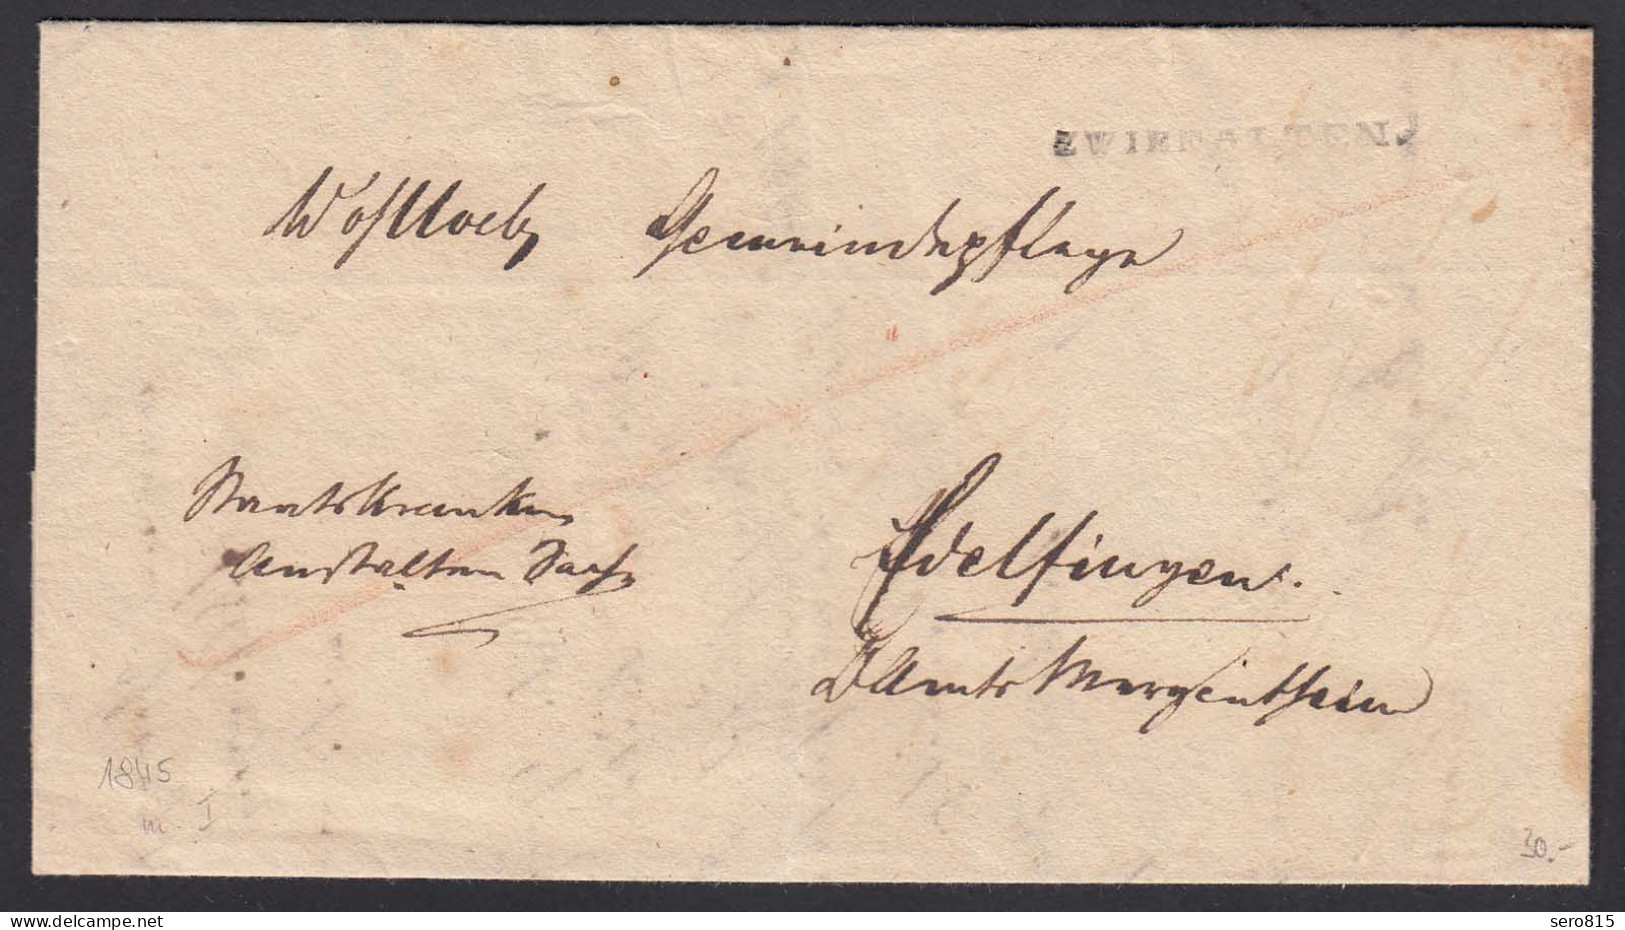 ZWIEFALTEN.
Wohllöbl. Gemeindepflege
Staatskranken
Anstalten Sache
Edelfingen.
OAmts Mergentheim
1845
m. I
30.-
delcampe.net
sero815